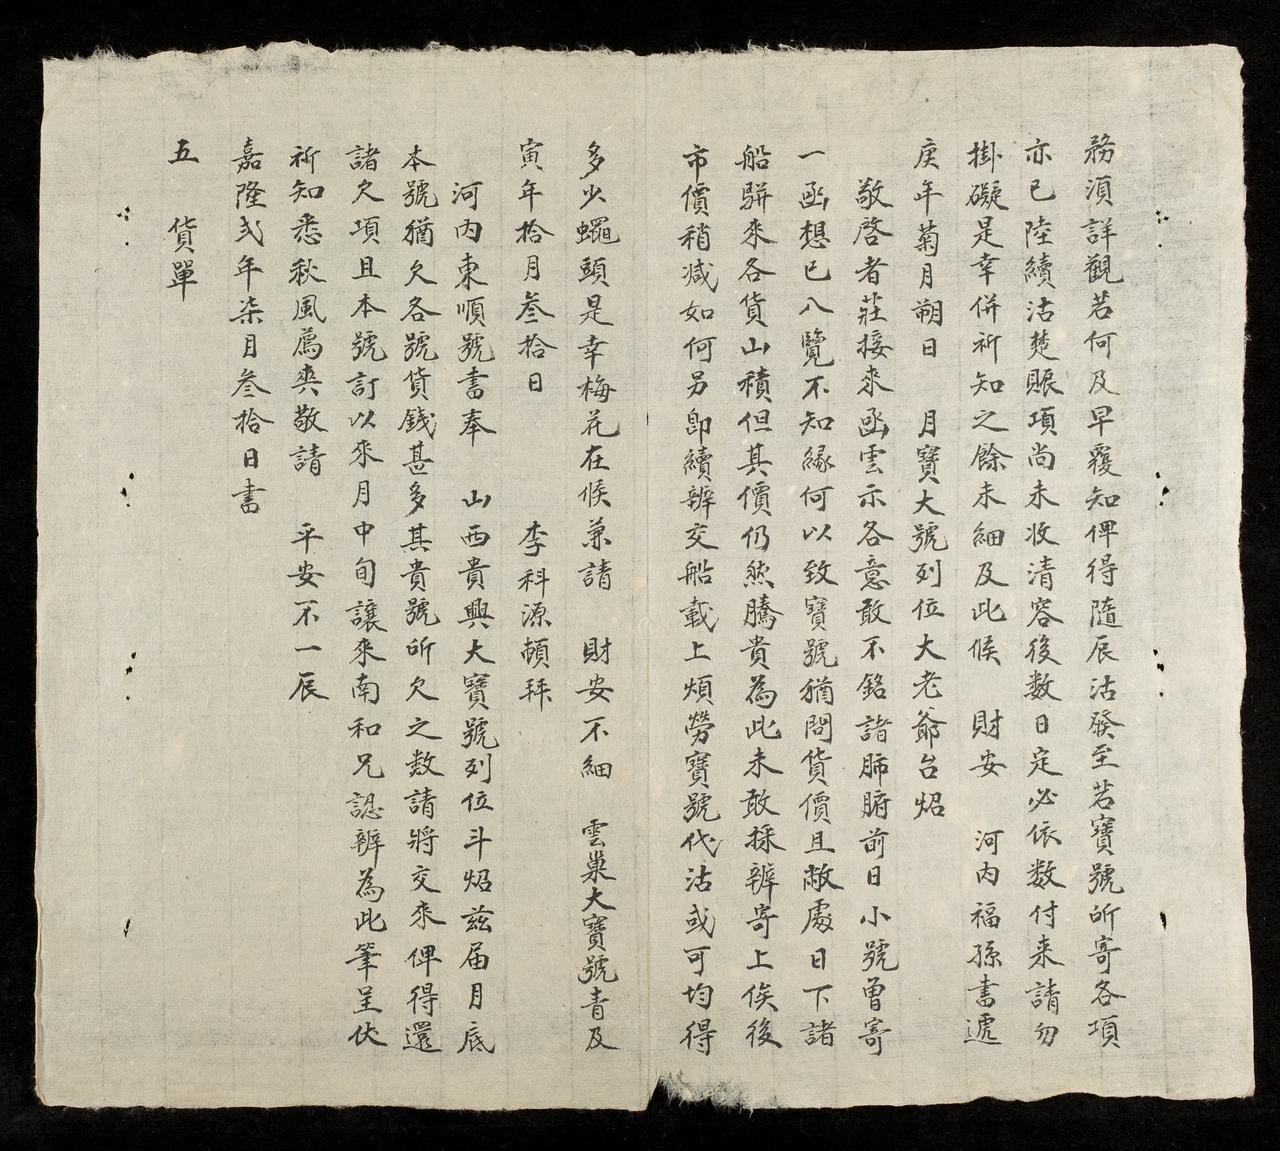 務湏詳觀若何及早覆知俾得隨辰沽發至若寶號所寄各項
亦已陸續沽楚賬項尚未收清容後数日定必依数付来請勿
掛礙是幸併祈知之餘未細及此候　財安　河内福孫書遞
庚年菊月朔日　月寶大號列位大老爺台炤
敬啓者莊接來函雲示各意敢不銘諸肺腑前日小號曾寄
一函想已入覽不知緣何以致寶號猶問貨價且敝處日下諸
船駢來各貨山積但其價仍然騰貴為此未敢採辦寄上俟後
市價稍减如何另即續辦交船載上煩勞寶號代沽或可均得
多少蠅頭是幸梅花在候兼請　財安不細　雲巢大寶號青及
寅年拾月叁拾日　李科源頓拜
河内東順號書奉　山西貴興大寶號列位斗炤茲届月底
本號猶欠各號貨錢甚多其貴號所欠之数請將交來俾得還
諸欠項且本號訂以來月中旬讓來南和兄認辦為此筆呈伏
祈知悉秋風薦爽敬請　平安不一辰
嘉隆弍年柒月叁拾日書
五　貨單